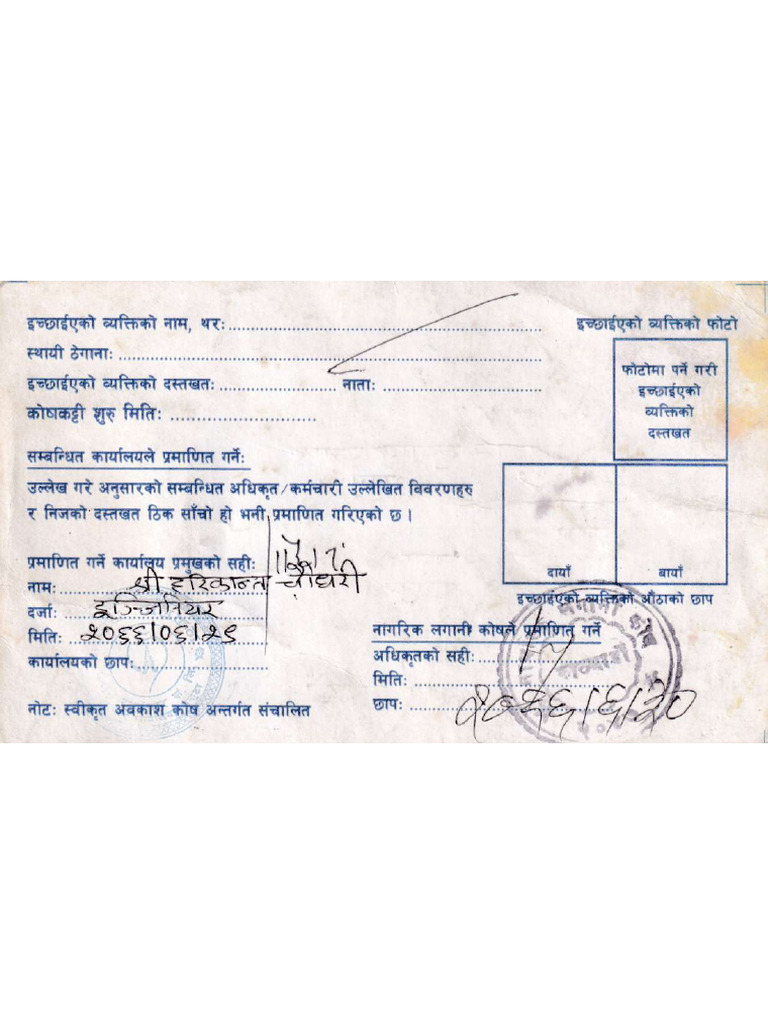 इच्छाईएको व्यक्तिको नाम, थरः
इच्छाईएको व्यक्तिको फोटो
स्थायी ठेगानाः
इच्छाईएको व्यक्तिको दस्तखतः नाताः
कोषकट्टी शुरु मितिः
फोटोमा पर्ने गरी
इच्छाईएको
व्यक्तिको
दस्तखत
सम्बन्धित कार्यालयले प्रमाणित गर्नेः
उल्लेख गरे अनुसारको सम्बन्धित अधिकृत/कर्मचारी उल्लेखित विवरणहरु
र निजको दस्तखत ठिक साँचो हो भनी प्रमाणित गरिएको छ ।
दायाँ बायाँ
इच्छाईएको व्यक्तिको औंठाको छाप
प्रमाणित गर्ने कार्यालय प्रमुखको सहीः
नामः श्री हरिकान्त चौधरी
दर्जाः इन्जिनियर
मितिः २०६६।०६।२९
कार्यालयको छापः
नागरिक लगानी कोषले प्रमाणित गर्ने
अधिकृतको सहीः
मितिः
छापः २०६६।६।३०
लगानी कोष
काठमाडौं
नोटः स्वीकृत अवकाश कोष अन्तर्गत संचालित